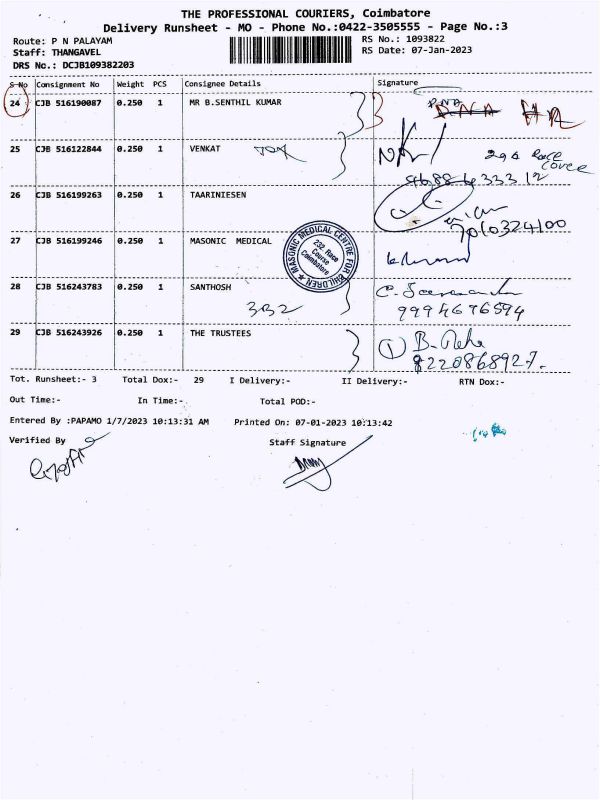 THE PROFESSIONAL COURIERS, Coimbatore
Delivery Runsheet - MO - Phone No.:0422-3505555 - Page No.:3
Route: P N PALAYAM
RS No.: 1093822
Staff: THANGAVEL
RS Date: 07-Jan-2023
DRS No.: DCJB109382203
S No Consignment No Weight PCS Consignee Details Signature
24 CJB 516190087 0.250 1 MR B.SENTHIL KUMAR
25 CJB 516122844 0.250 1 VENKAT
26 CJB 516199263 0.250 1 TAARINIESEN
7010324100
27 CJB 516199246 0.250 1 MASONIC MEDICAL
MASONIC MEDICAL CENTRE FOR CHILDREN
232, Race
Course
Coimbatore
28 CJB 516243783 0.250 1 SANTHOSH
332
9994676594
29 CJB 516243926 0.250 1 THE TRUSTEES
1
8220868927.
Tot. Runsheet:- 3 Total Dox:- 29 I Delivery:- II Delivery:- RTN Dox:-
Out Time:- In Time:- Total POD:-
Entered By :PAPAMO 1/7/2023 10:13:31 AM Printed On: 07-01-2023 10:13:42
Verified By Staff Signature